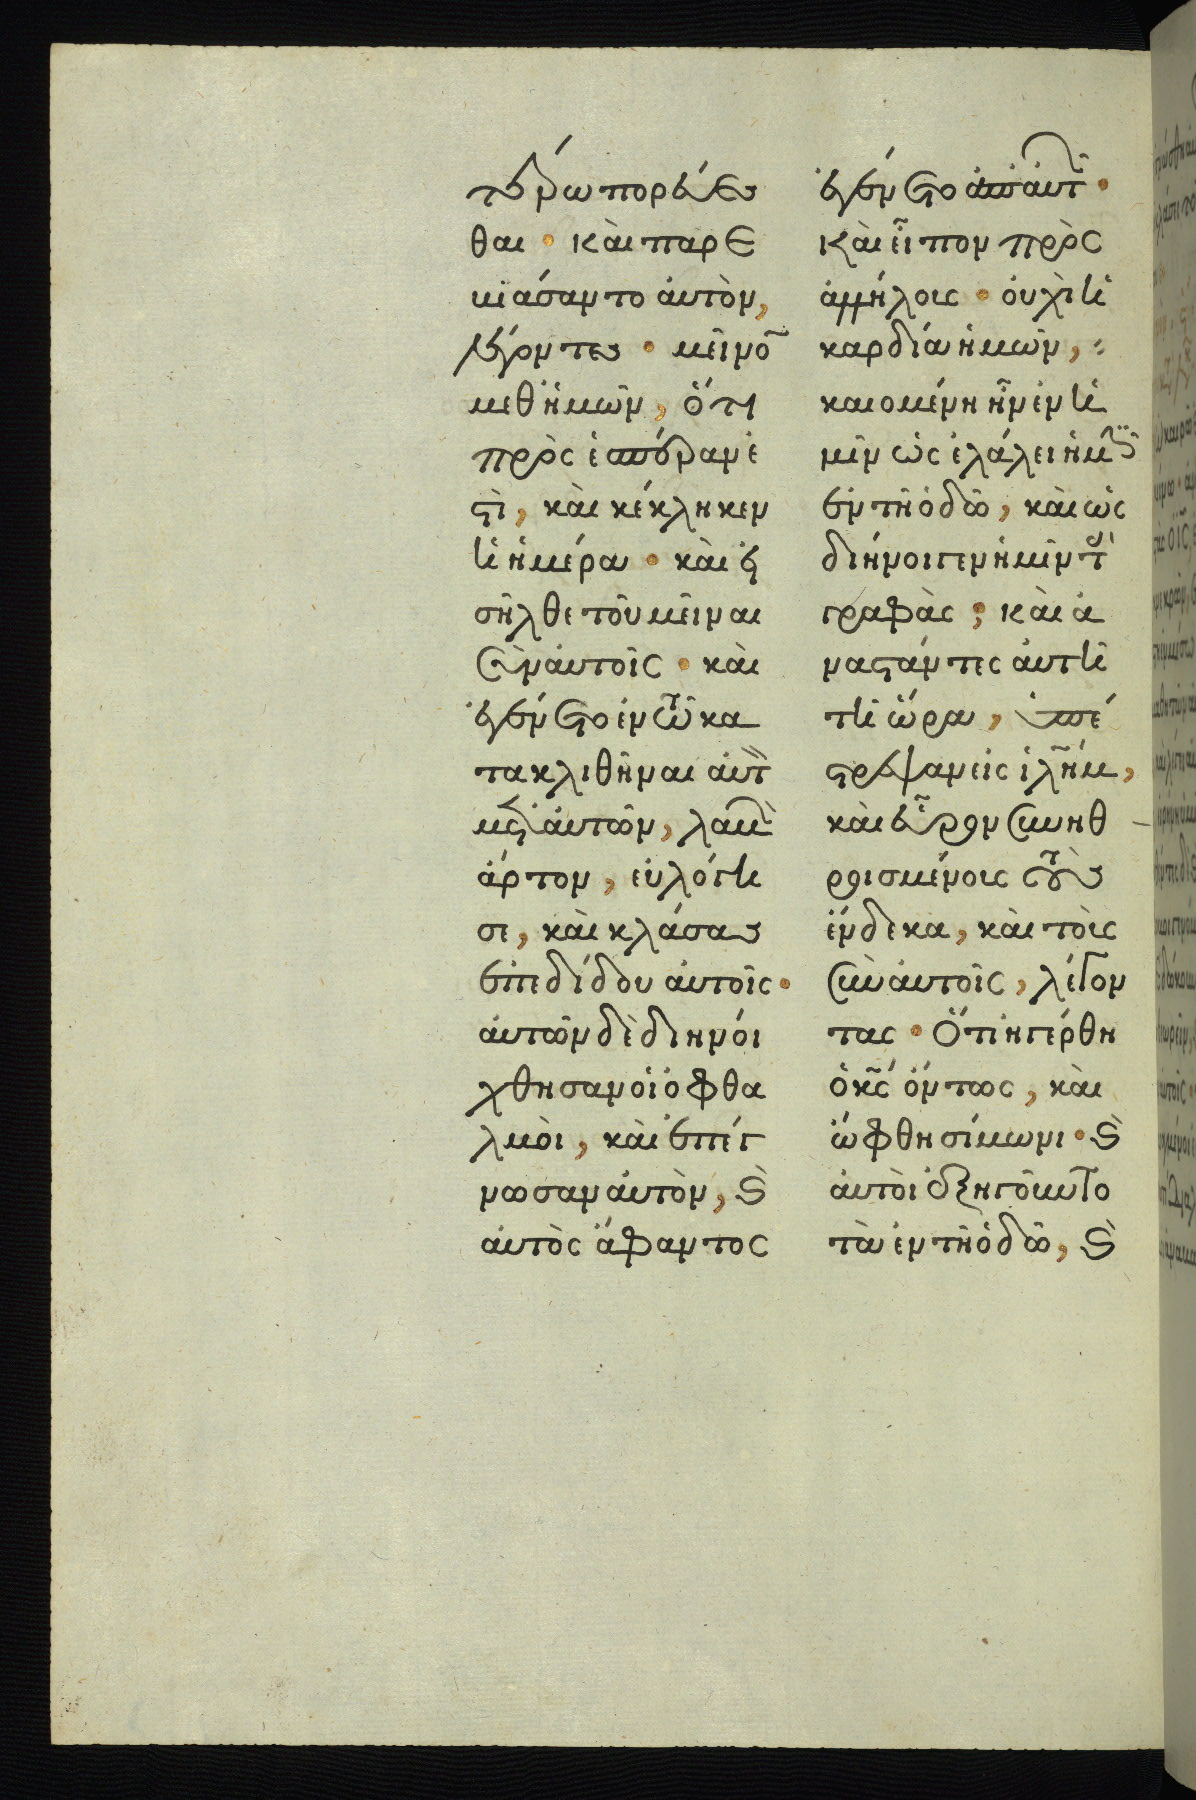 τέρω πορεύεσ
θαι · καὶ παρε
βιάσαντο αὐτὸν,
λέγοντες · μεῖνο̃
μεθ ἡμῶν, ὅτι
πρὸς ἑσπέραν ἐ
ϛὶ, καὶ κέκλικεν
ἡ ἡμέρα · καὶ εἰ
σῆλθε τοῦ μεῖναι
σὺν αὐτοῖς · καὶ
ἐγένετο ἐν τῶ κα
τακλιθῆναι αὐτ̀
μετ αὐτῶν, λαβ̀
ἄρτον, εὐλόγη
σε, καὶ κλάσας
ἐπεδίδου αὐτοῖς ·
αὐτῶν δὲ διηνοί
χθησαν οἱ ὀφθα
λμοὶ, καὶ ἐπέγ
νωσαν αὐτὸν, ϗ
αὐτὸς ἄφαντος
ἐγένετο ἀπ αὐτ͂ ·
καὶ εἶπον πρὸς
ἀλλήλους · οὐχὶ ἡ
καρδία ἡμῶν,
καιομένη ἦν ἐν ἡ
μῖν ὡς ἐλάλει ἡμῖ͂
ἐν τῆ ὁδῶ, καὶ ὡς
διήνοιγεν ἡμῖν τ̀
γραφάς ; καὶ ἀ
ναϛάντες αὐτῆ
τῆ ὥρα, ὑπέ
ϛρεψαν εἰς ἱλ̃ήμ,
καὶ εὗρον συνηθ
ροισμένους τοὺς
ἕνδεκα, καὶ τοὺς
σὺν αὐτοῖς, λέγον
τας · Ὅτι ἠγέρθη
ὁ κ̃ς ὄντως, καὶ
ὤφθη σίμωνι · ϗ
αὐτοὶ ἐξηγοῦντο
τὰ ἐν τῆ ὁδῶ, ϗ